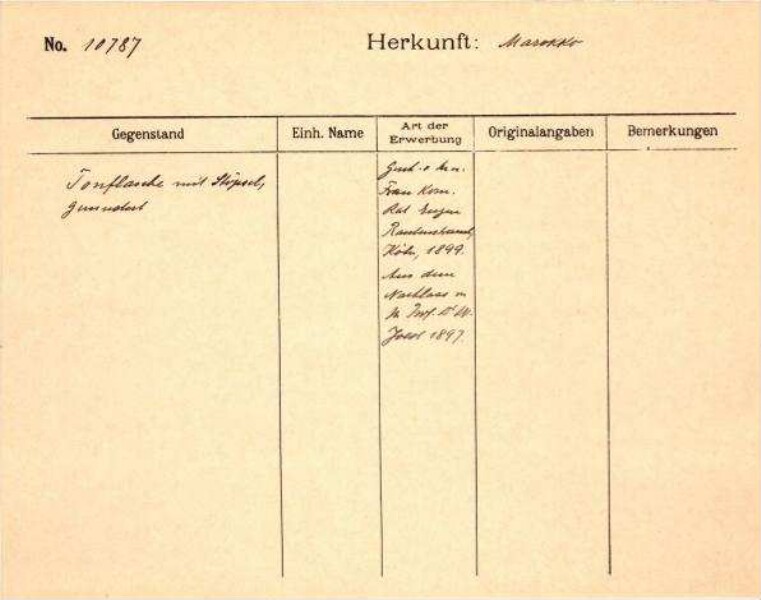 No. 10787
Herkunft: Marokko
Gegenstand
Einh. Name
Art der
Erwerbung
Originalangaben
Bemerkungen
Tonflasche mit Stöpsel,
Gesch. v
Frau Kom.
Rat Eugen
Rautenstrauch,
Köln, 1899.
Aus dem
Nachlass v
H. Prof. Dr W.
Joest 1897.